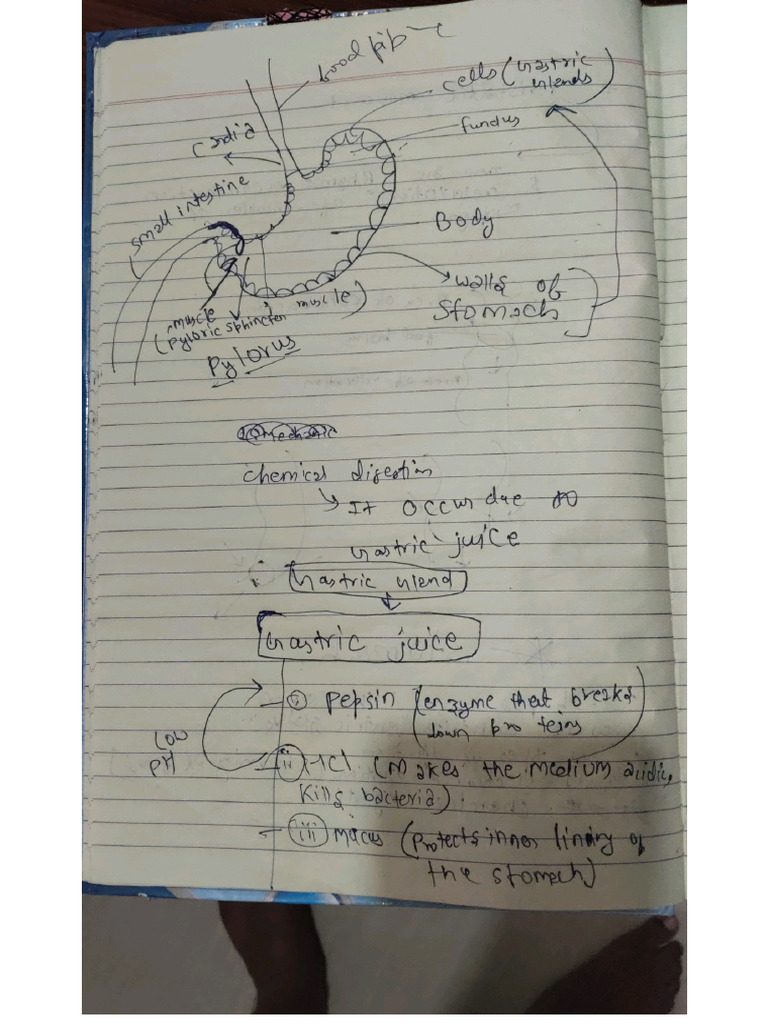 food pipe
cells (Gastric
glands)
fundus
Cardia
small intestine
Body
walls of
Stomach
muscle)
muscle
(pyloric sphincter
Pylorus
chemical digestion
↳ It occurs due to
Gastric juice
Gastric gland
Gastric juice
(i) Pepsin (enzyme that breaks
down proteins
Low
PH
(ii) HCl (Makes the medium acidic,
Kills bacteria)
(iii) mucus (Protects inner lining of
the stomach)